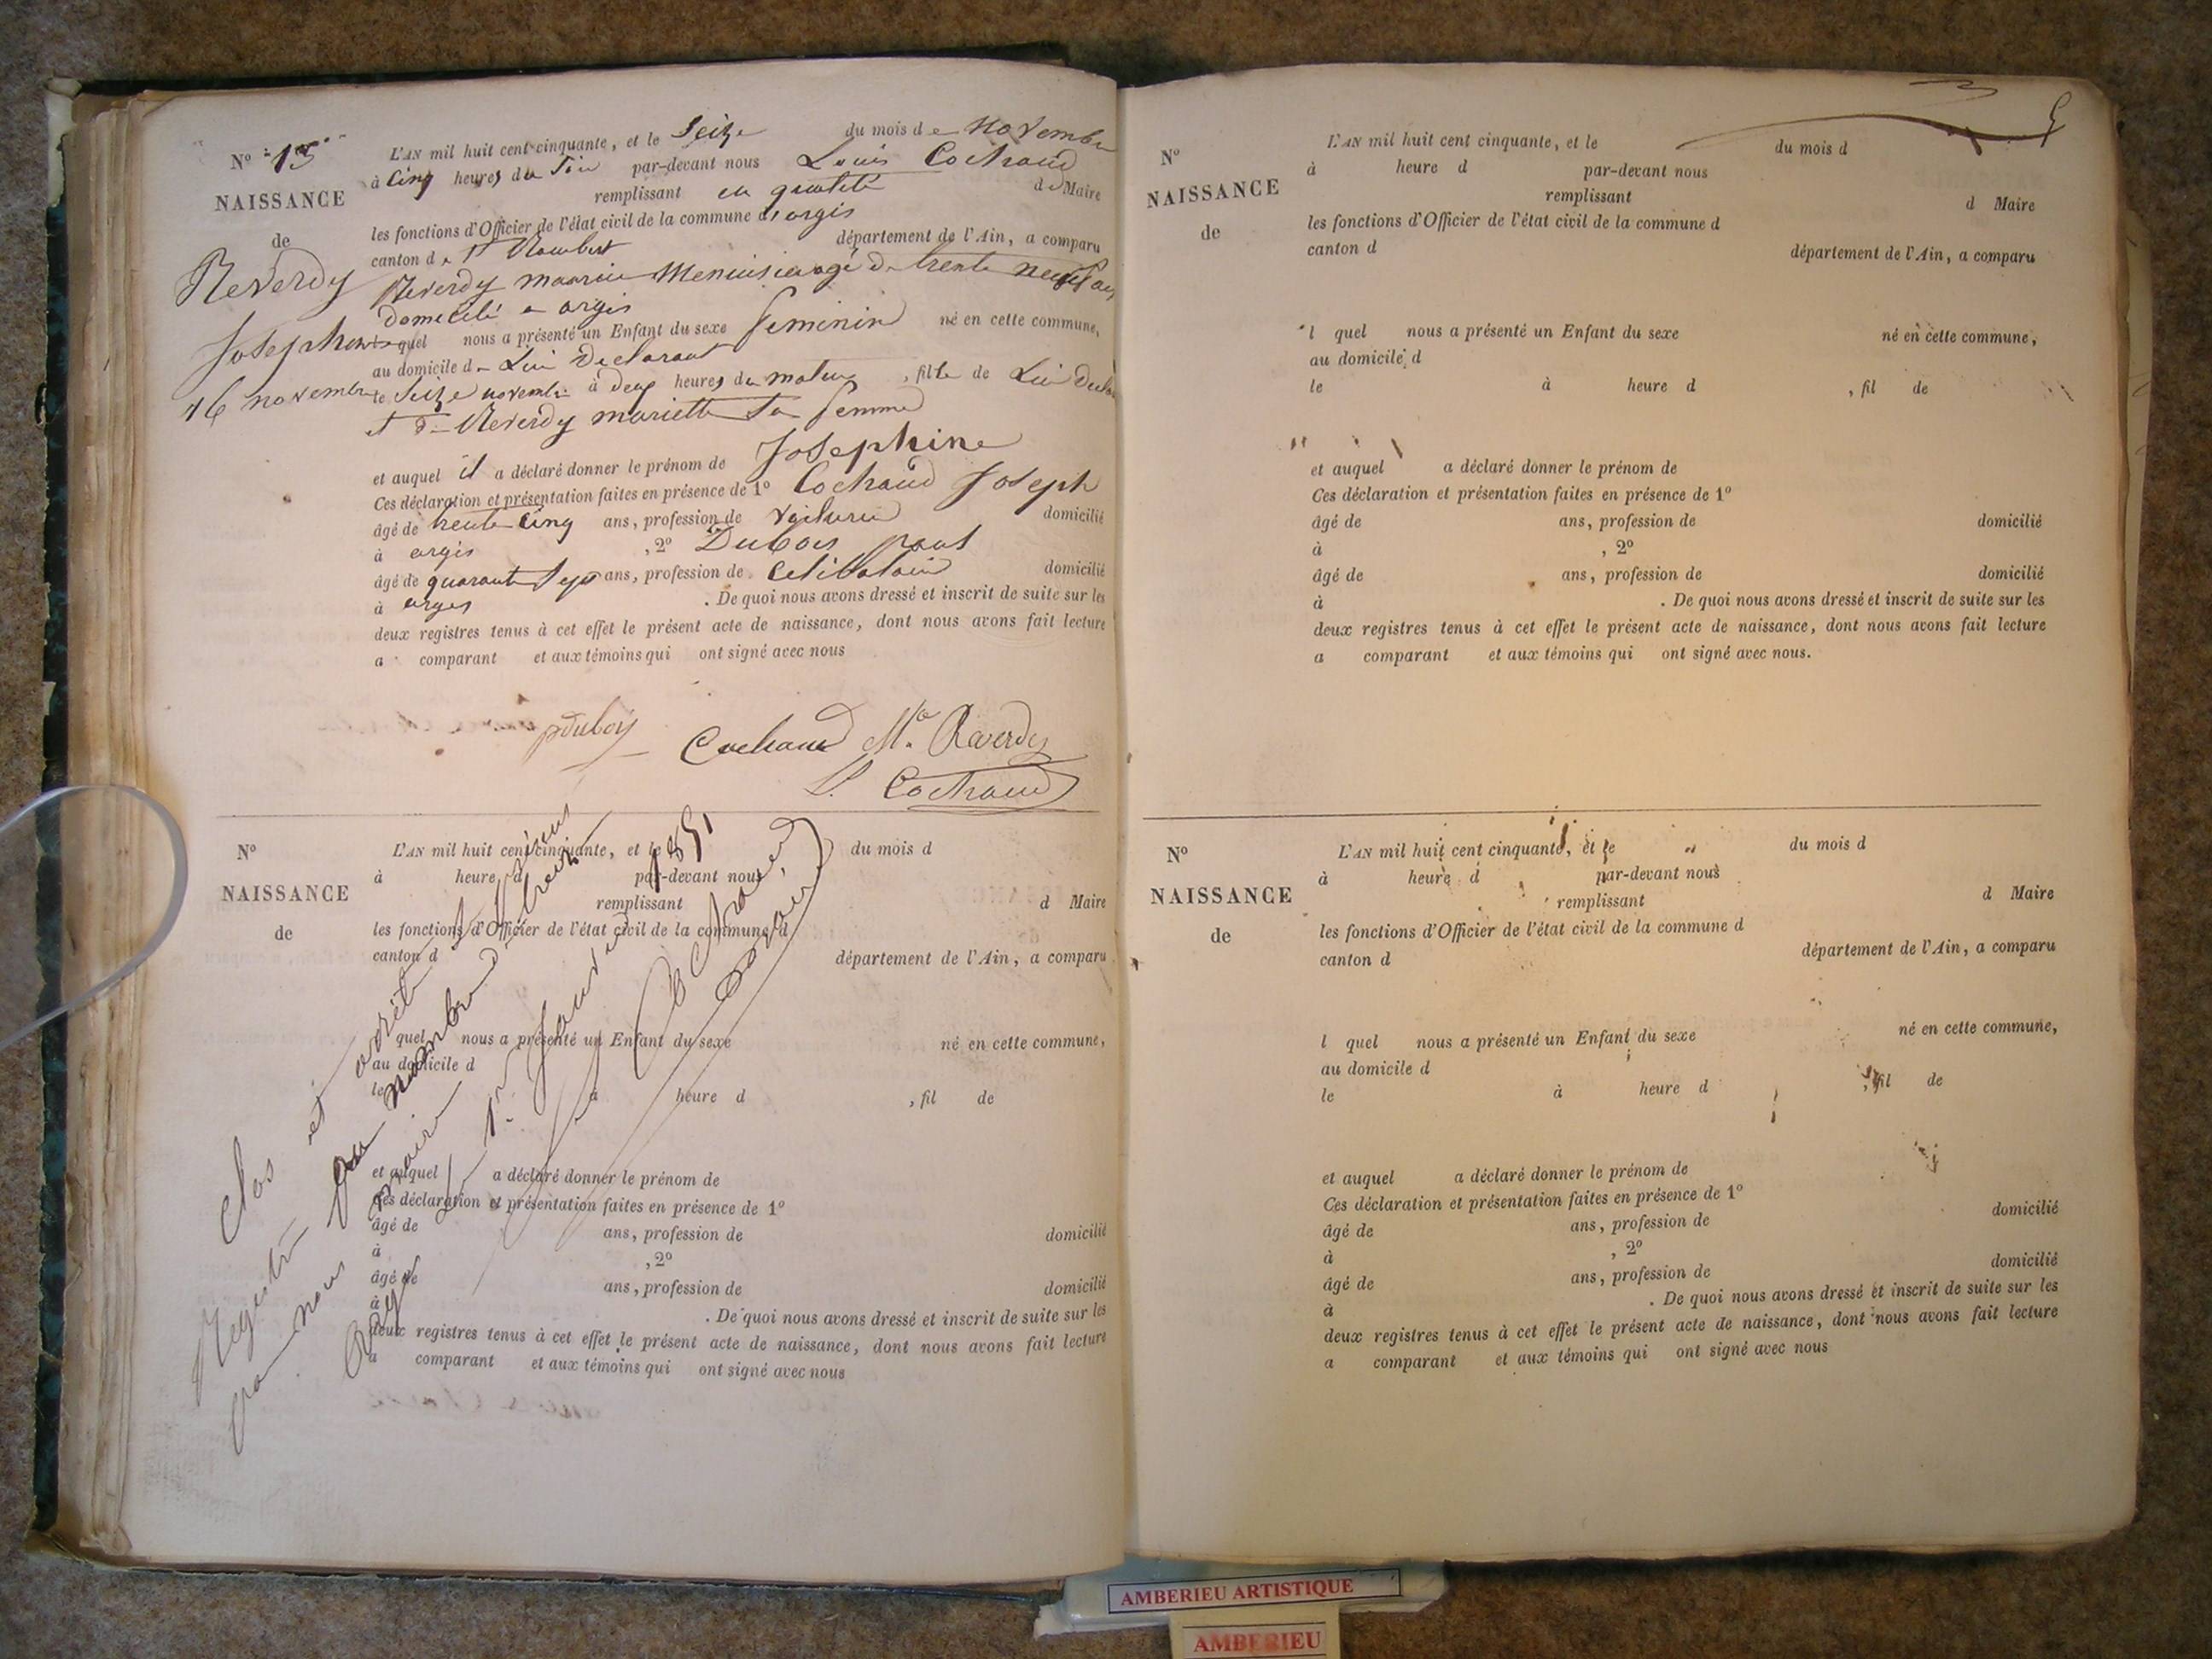 N° 13
NAISSANCE
de
Reverdy
Josephine
16 novembre
L'AN mil huit cent cinquante, et le Seize du mois de novembre
à Cinq heures du Soir par-devant nous Louis Cochaud
remplissant en qualité de Maire
les fonctions d'Officier de l'état civil de la commune d'argis
canton de St Rambert département de l'Ain, a comparu
Reverdy maurice Menuisier agé de trente neuf ans
domicilié a argis
lequel nous a présenté un Enfant du sexe feminin né en cette commune,
au domicile de Lui Declarant
le Seize novembre à deux heures du matin, fille de Lui
et de Reverdy mariette Sa femme
et auquel il a déclaré donner le prénom de Josephine
Ces déclaration et présentation faites en présence de 1° Cochaud Joseph
âgé de trente Cinq ans, profession de Voiturier domicilié
à argis , 2° Dubois paul
âgé de quarante Sept ans, profession de Celibataire domicilié
à argis . De quoi nous avons dressé et inscrit de suite sur les
deux registres tenus à cet effet le présent acte de naissance, dont nous avons fait lecture
a comparant et aux témoins qui ont signé avec nous
pDuboy Cochaud Mce Reverdy
L. Cochaud
N°
NAISSANCE
de
L'AN mil huit cent cinquante, et le du mois d
à heure d par-devant nous
remplissant d Maire
les fonctions d'Officier de l'état civil de la commune d
canton d département de l'Ain, a comparu
l quel nous a présenté un Enfant du sexe né en cette commune,
au domicile d
le à heure d , fil de
et auquel a déclaré donner le prénom de
Ces déclaration et présentation faites en présence de 1°
âgé de ans, profession de domicilié
à , 2°
âgé de ans, profession de domicilié
à . De quoi nous avons dressé et inscrit de suite sur les
deux registres tenus à cet effet le présent acte de naissance, dont nous avons fait lecture
a comparant et aux témoins qui ont signé avec nous
Clos et arrété le
Registre au nombre de treize
par nous maire
argis le 1er Janvier 1851
L Cochaud
N°
NAISSANCE
de
L'AN mil huit cent cinquante, et le du mois d
à heure d par-devant nous
remplissant d Maire
les fonctions d'Officier de l'état civil de la commune d
canton d département de l'Ain, a comparu
l quel nous a présenté un Enfant du sexe né en cette commune,
au domicile d
le à heure d , fil de
et auquel a déclaré donner le prénom de
Ces déclaration et présentation faites en présence de 1°
âgé de ans, profession de domicilié
à , 2°
âgé de ans, profession de domicilié
à . De quoi nous avons dressé et inscrit de suite sur les
deux registres tenus à cet effet le présent acte de naissance, dont nous avons fait lecture
a comparant et aux témoins qui ont signé avec nous.
N°
NAISSANCE
de
L'AN mil huit cent cinquante, et le du mois d
à heure d par-devant nous
remplissant d Maire
les fonctions d'Officier de l'état civil de la commune d
canton d département de l'Ain, a comparu
l quel nous a présenté un Enfant du sexe né en cette commune,
au domicile d
le à heure d , fil de
et auquel a déclaré donner le prénom de
Ces déclaration et présentation faites en présence de 1°
âgé de ans, profession de domicilié
à , 2°
âgé de ans, profession de domicilié
à . De quoi nous avons dressé et inscrit de suite sur les
deux registres tenus à cet effet le présent acte de naissance, dont nous avons fait lecture
a comparant et aux témoins qui ont signé avec nous
AMBERIEU ARTISTIQUE
AMBERIEU